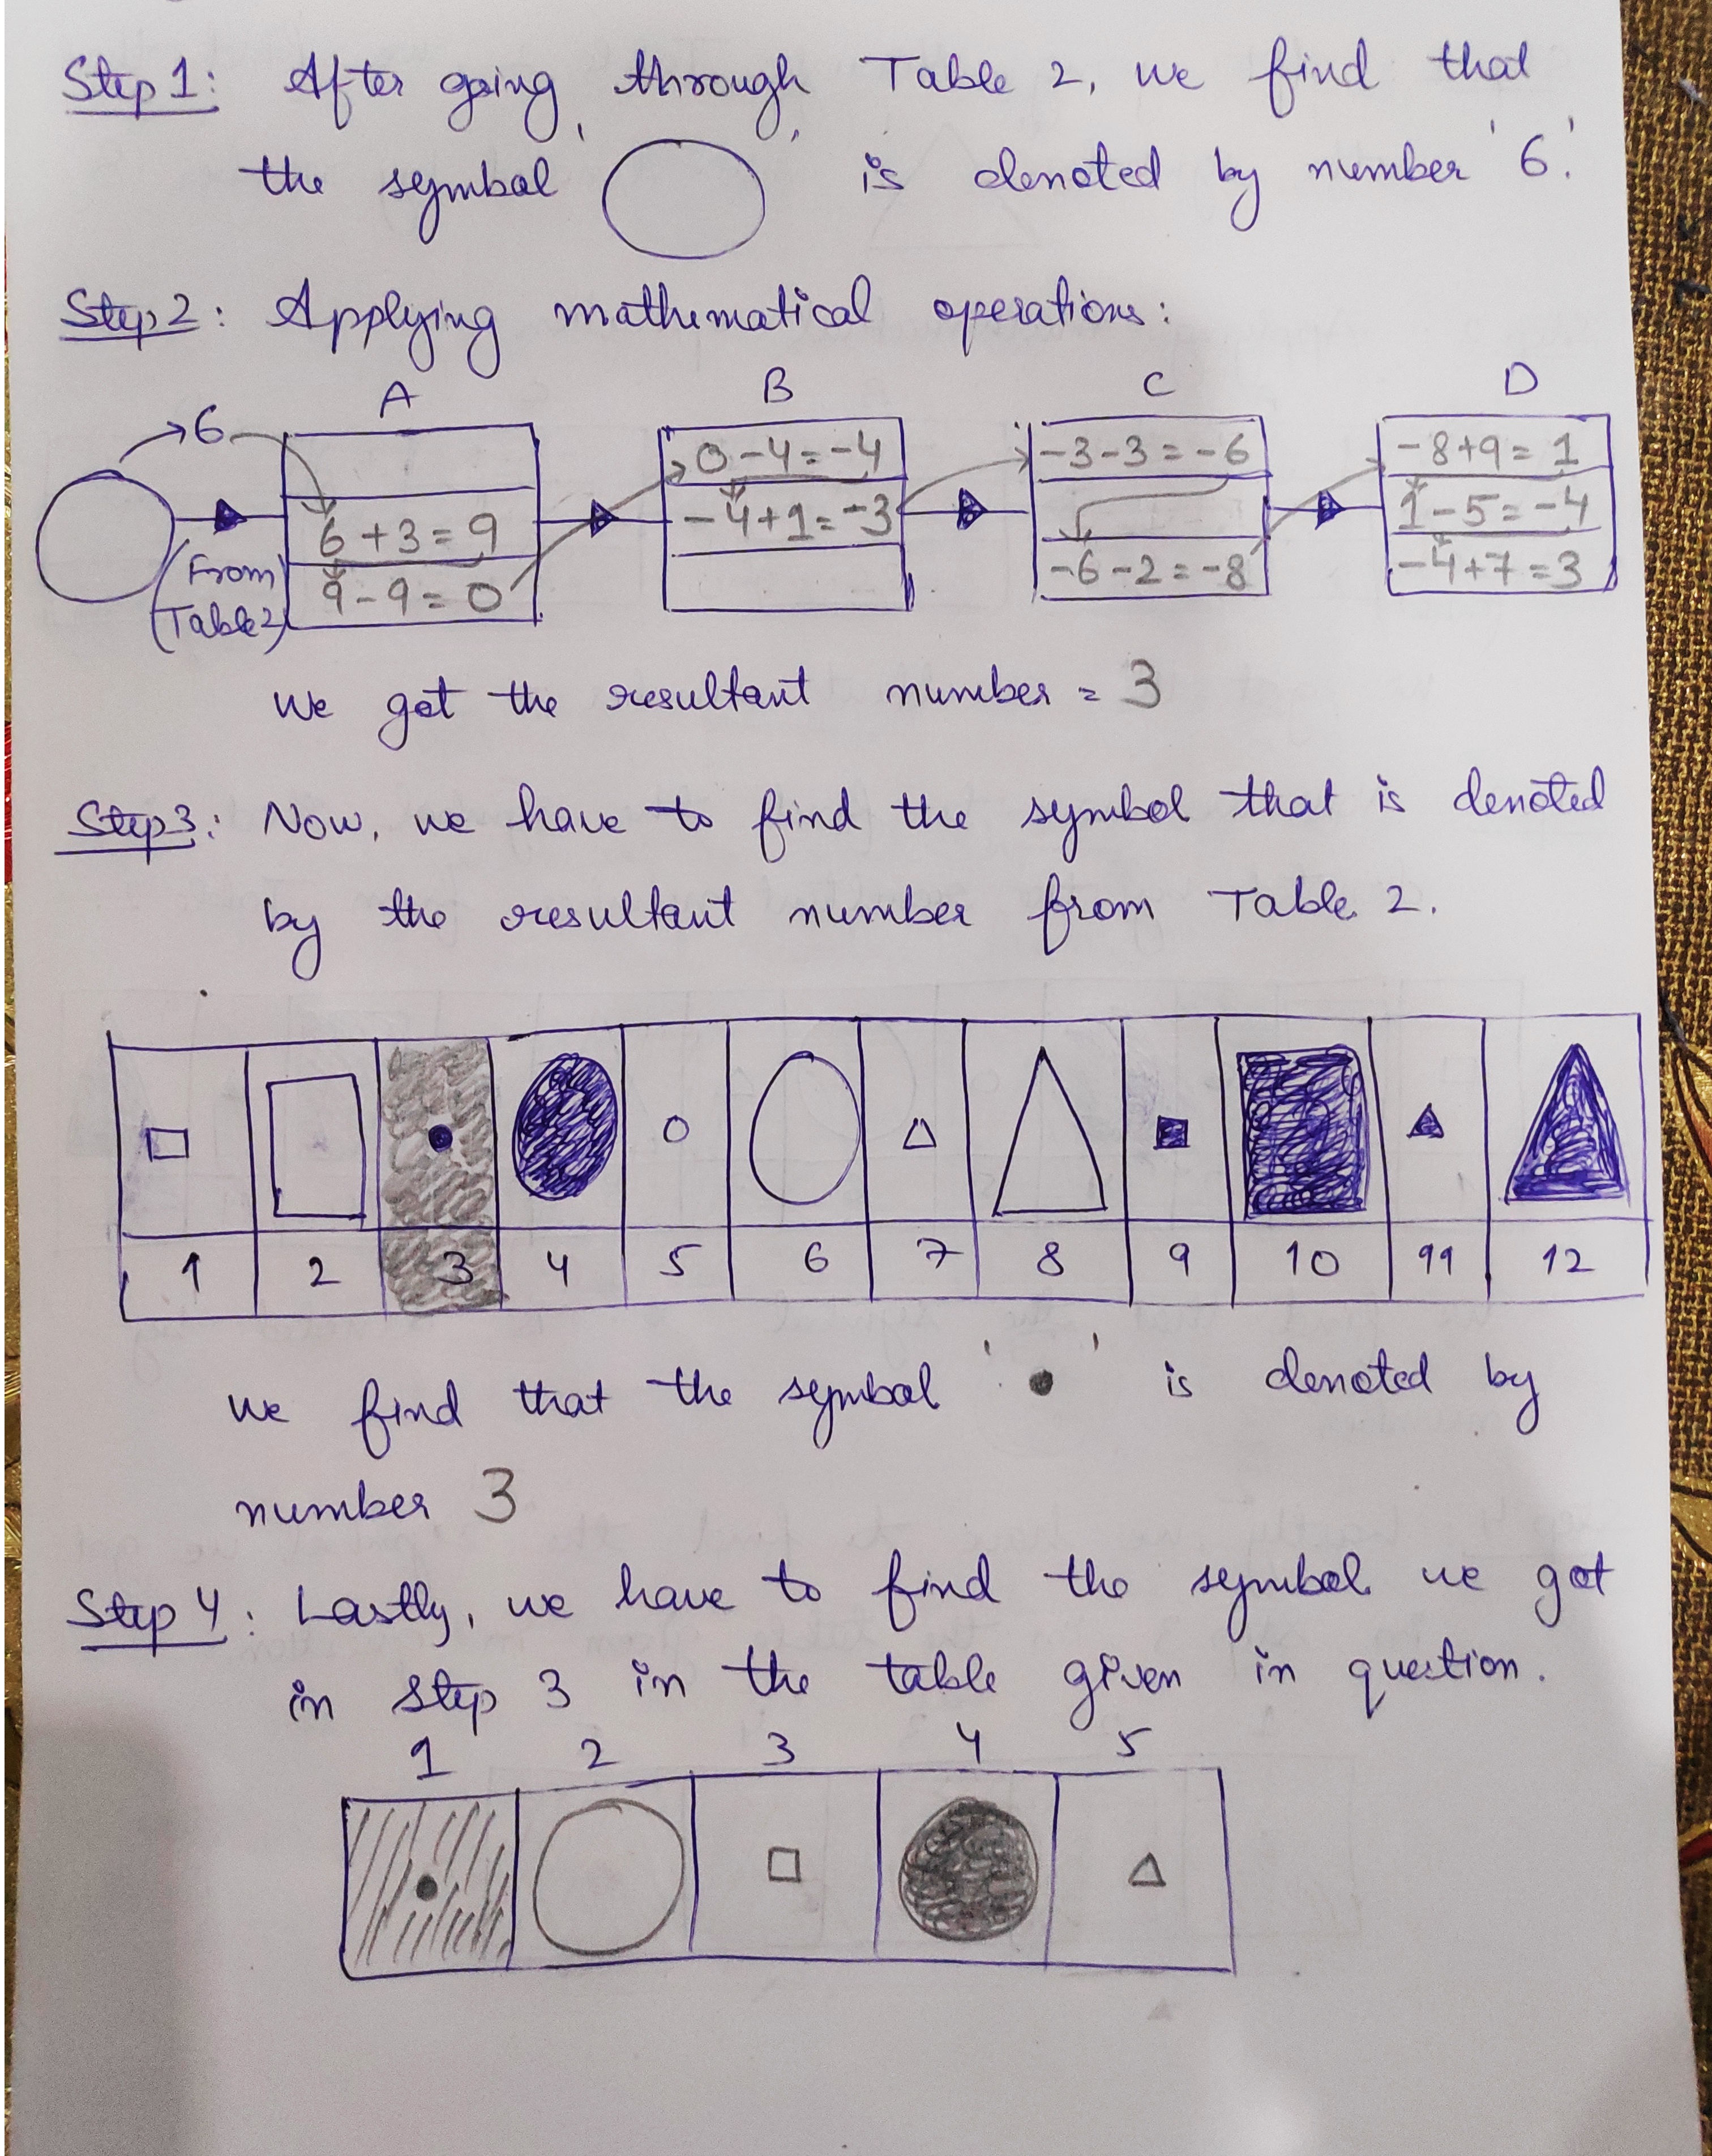 Step 1: After going through Table 2, we find that
the symbol ' ' is denoted by number '6'.
Step 2: Applying mathematical operations:
A B C D
6
0-4=-4 -3-3=-6 -8+9=1
6+3=9 -4+1=-3 1-5=-4
9-9=0 -6-2=-8 -4+7=3
(From
Table 2)
We got the resultant number = 3
Step 3: Now, we have to find the symbol that is denoted
by the resultant number from Table 2.
1 2 3 4 5 6 7 8 9 10 11 12
we find that the symbol ' ' is denoted by
number 3
Step 4: Lastly, we have to find the symbol we got
in step 3 in the table given in question.
1 2 3 4 5